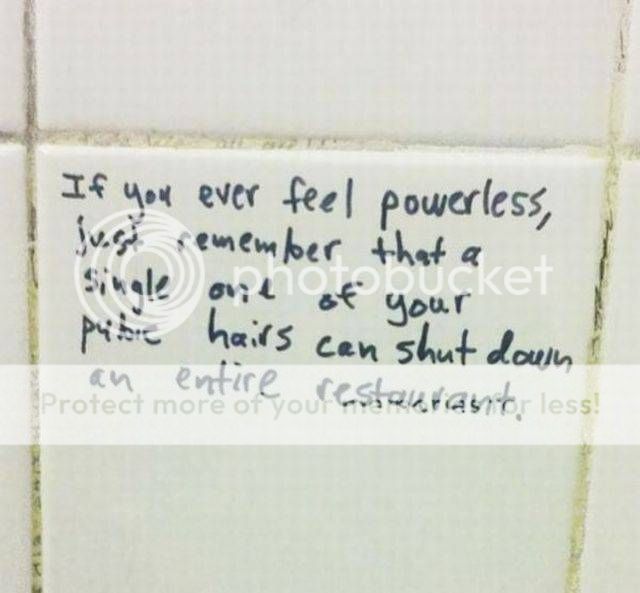 If you ever feel powerless,
just remember that a
single one of your
pubic hairs can shut down
an entire restaurant.
photobucket
Protect more of your memories for less!